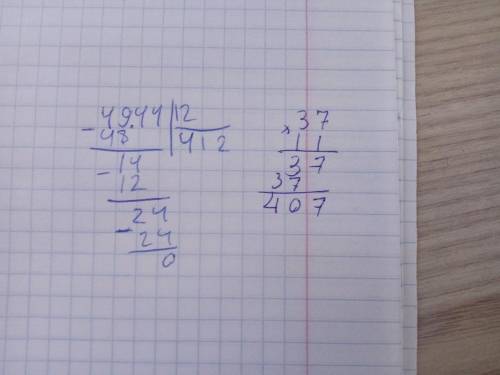 - 4944 | 12
48 | 412
- 14
12
24
- 24
0
× 37
11
37
37
407